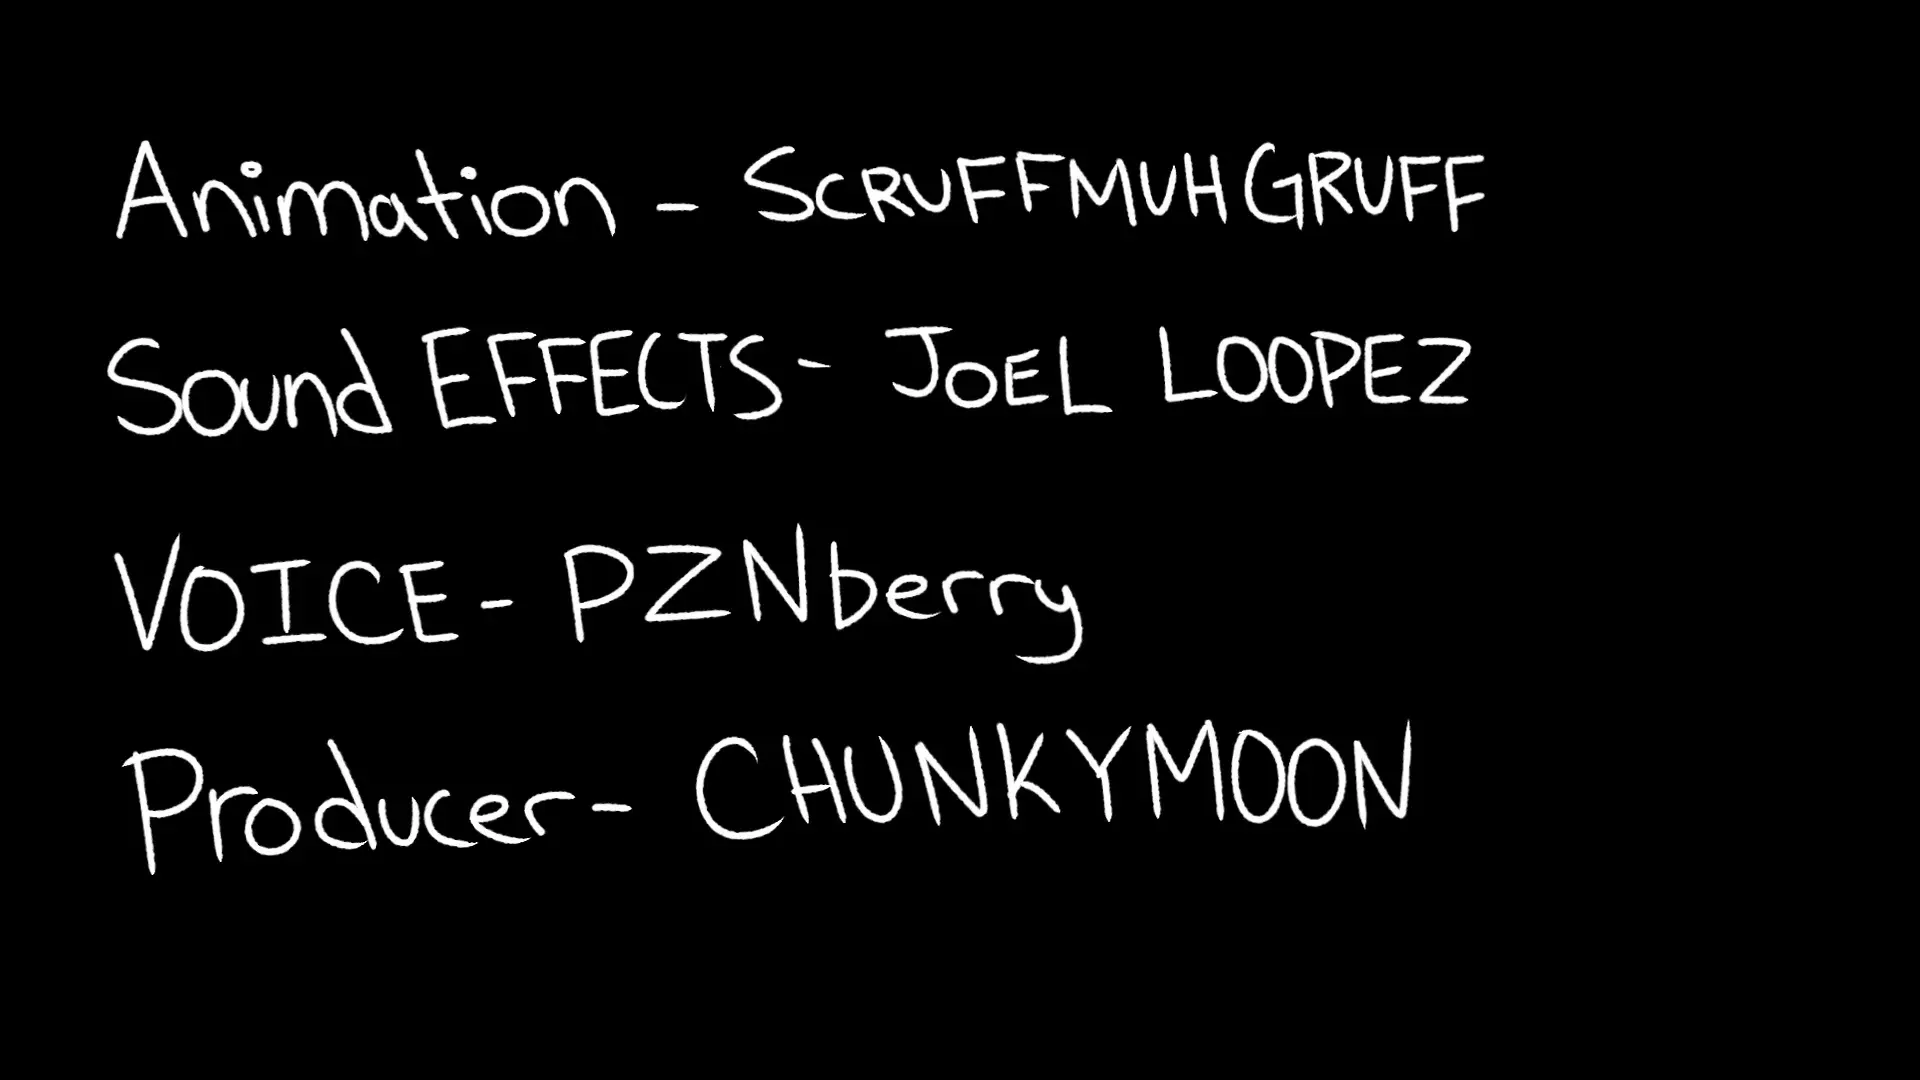 Animation - SCRUFFMUHGRUFF
Sound EFFECTS - JOEL LOOPEZ
VOICE - PZNberry
Producer - CHUNKYMOON